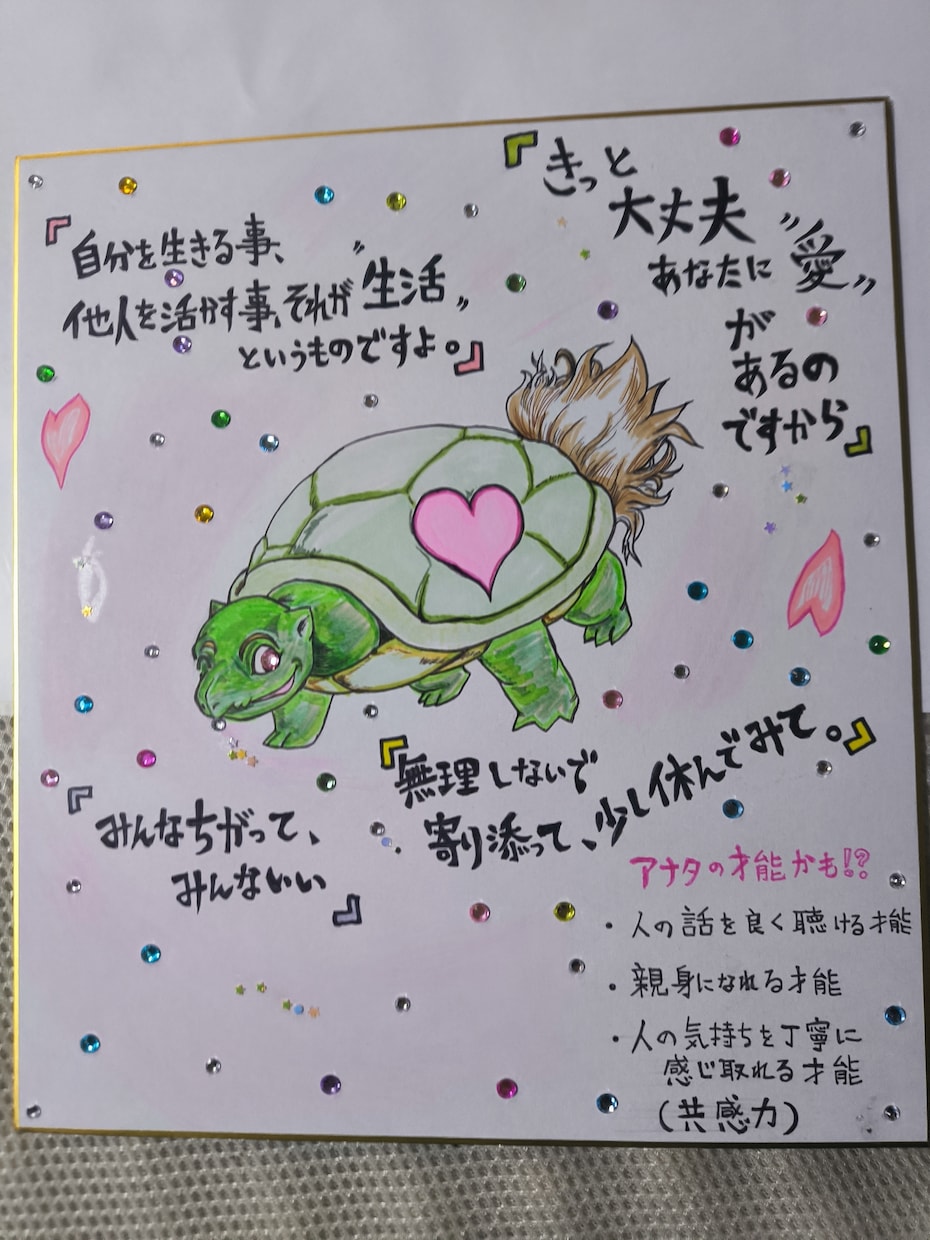 『自分を生きる事、
他人を活かす事、それが〝生活〟
というものですよ。』
『きっと
大丈夫
あなたに〝愛〟
が
あるの
ですから』
『みんなちがって、
みんないい』
『無理しないで
寄り添って、少し休んでみて。』
アナタの才能かも!?
・人の話を良く聴ける才能
・親身になれる才能
・人の気持ちを丁寧に
感じ取れる才能
(共感力)